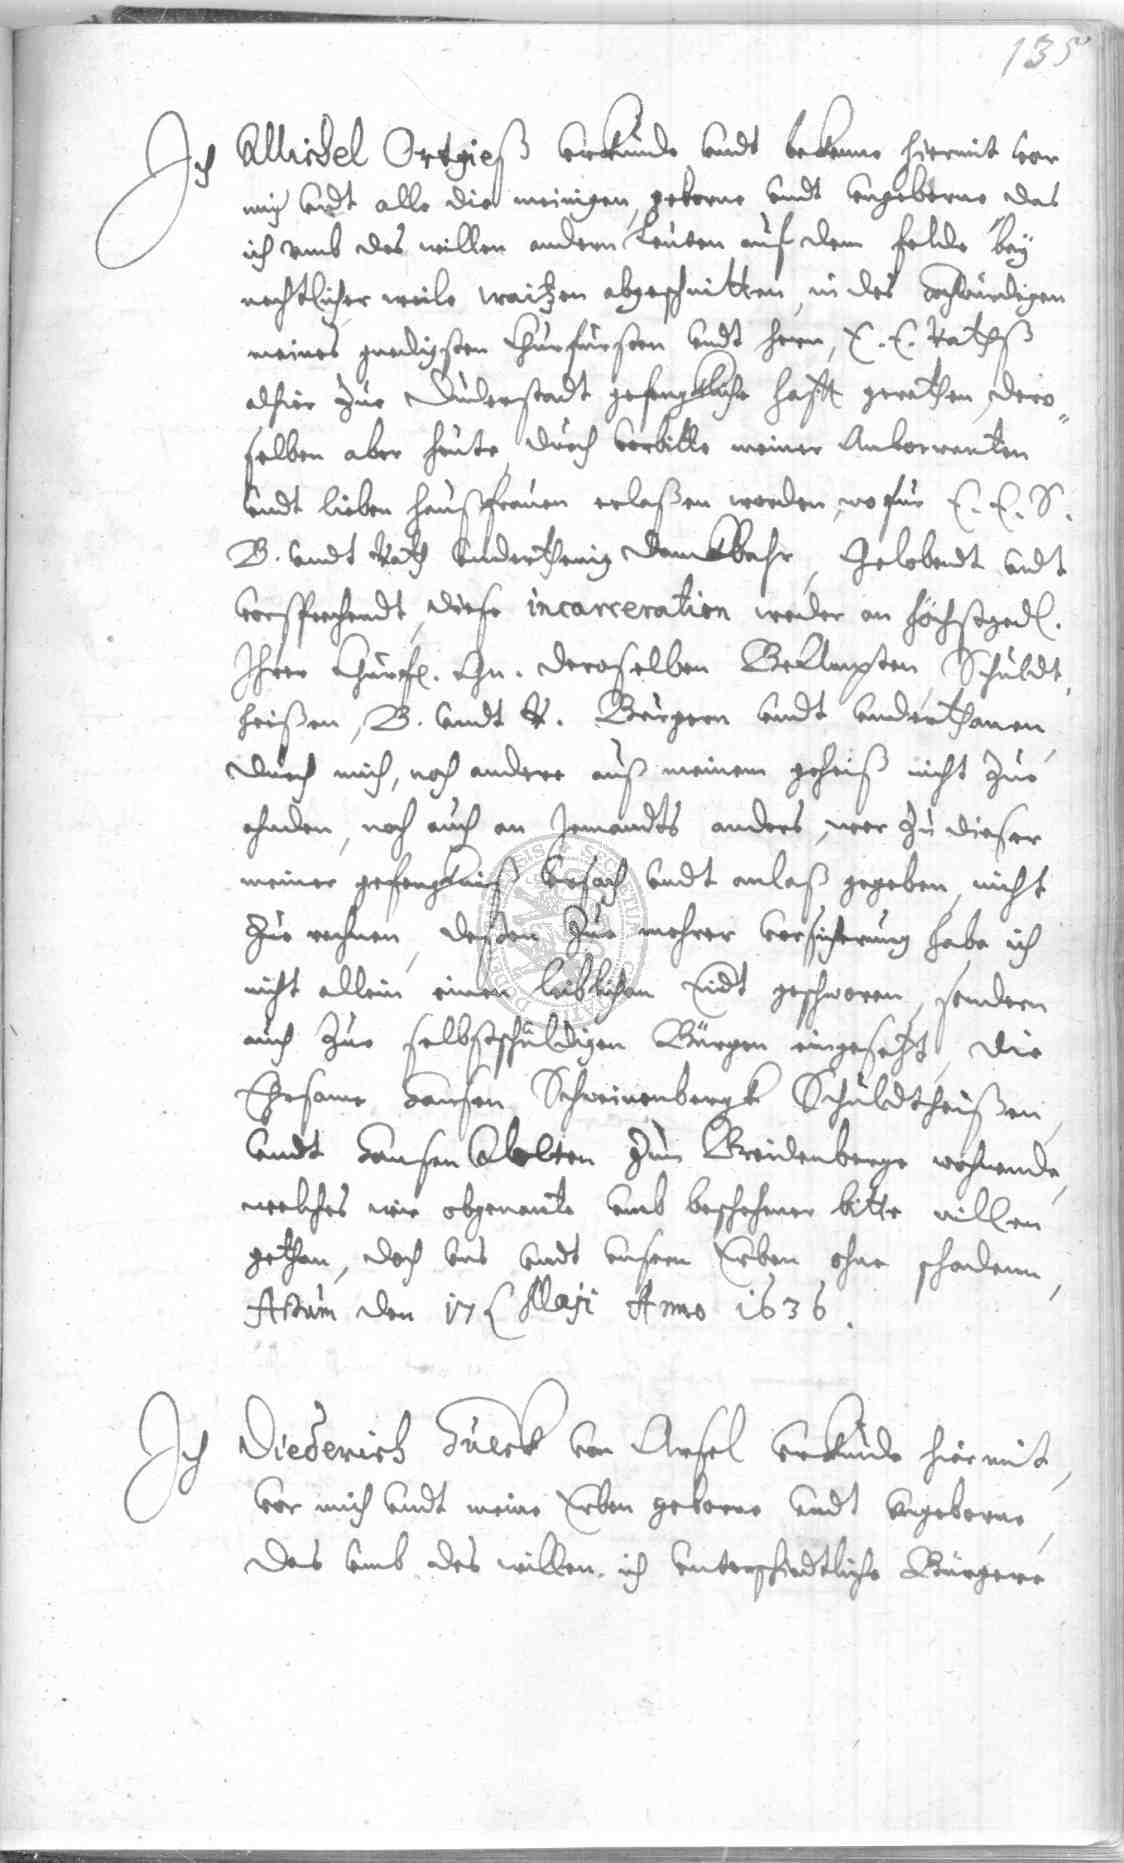 135
Ich Michel Ortgieß uhrkunde undt bekenne hiermit vor
mich undt alle die meinigen, geborne undt ungeborne das
ich umb des willen andern Leuten auf dem felde bey
nechtlicher weile waitzen abgeschnitten, in des Hochwürdigen
meines gnedigsten Churfursten undt hern, E. E. Rathß
alhier zue Duderstadt gefengkliche hafft gerathen, dero¬
selben aber heute, durch vorbitte meiner Anverwanten
undt lieben haußfrauen erlaßen worden, wofur E. E. S.
B. undt Rath underthenig danckbahr, Gelobendt undt
versprechendt, diese incarceration weder an höchstged.
Ihrer Churf. Gn. deroselben Be Ampten, Schuldt
heißen, B. undt R. Bürgern undt underthanen
durch mich, noch andere auß meinem geheiß nicht zue
ahnden, noch auch an Jemandts anders, wer zu dieser
meiner gefengkniß ursach undt anlaß gegeben, nicht
zue rechnen, deßen zue mehrer versicherung habe ich
nicht allein einen leiblichen Eidt geschworen, sondern
auch zue selbstschuldigen Bürgen eingesetzt, die
Ehrsame Hansen Schweinenbergk Schuldtheißen,
undt Hansen Nolten zum Breidenberge wohnende,
welches wir obgenante umb beschehener bitte willen
gethan, doch uns undt unsern Erben ohne schadenn,
Actum den 17 Maji Anno 1636.
Ich Diederich Hueck von Arsel uhrkunde hiermit,
vor mich undt meine Erben geborne undt ungeborne,
das umb des willen ich unterschiedtliche Bürgere